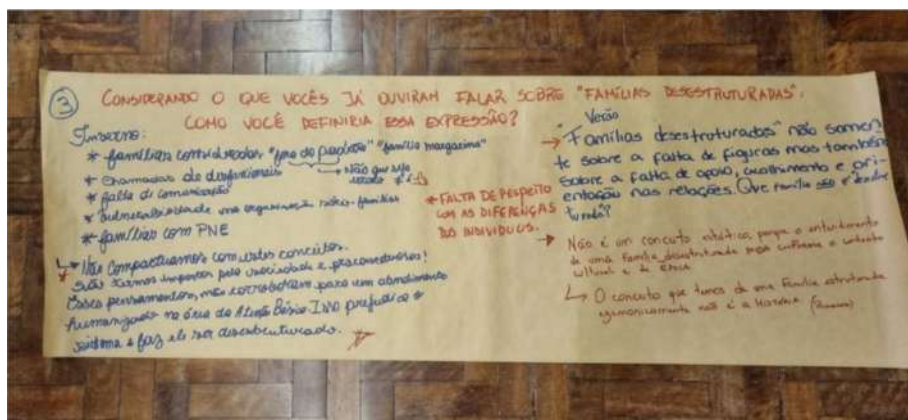 3
CONSIDERANDO O QUE VOCÊS JÁ OUVIRAM FALAR SOBRE "FAMÍLIAS DESESTRUTURADAS".
COMO VOCÊ DEFINIRIA ESSA EXPRESSÃO?
Inverno:
* famílias consideradas "fora do padrão" "família margarina"
* Chamadas de disfuncionais → Não que seja
* falta de comunicação
* vulnerabilidade na organização sócio-familiar
* famílias com PNE
→ Não compactuamos com estes conceitos.
* São termos impostos pela sociedade e preconceituosos!
Esses pensamentos, não corroboram para um atendimento
humanizado na área da Atenção Básica. Isso prejudica o
sistema e faz ele ser desestruturado.
* FALTA DE RESPEITO
COM AS DIFERENÇAS
DO INDIVÍDUOS.
Verão
→ "Famílias desestruturadas" não somen
te sobre a falta de figuras mas também
sobre a falta de apoio, acolhimento e ori-
entação nas relações. Que família não é deses
turada?
→ Não é um conceito estático, porque o entendimento
de uma família desestruturada conforme o contexto
cultural e de época
↳ O conceito que temos de uma Família estruturada
egemonicamente não é a História